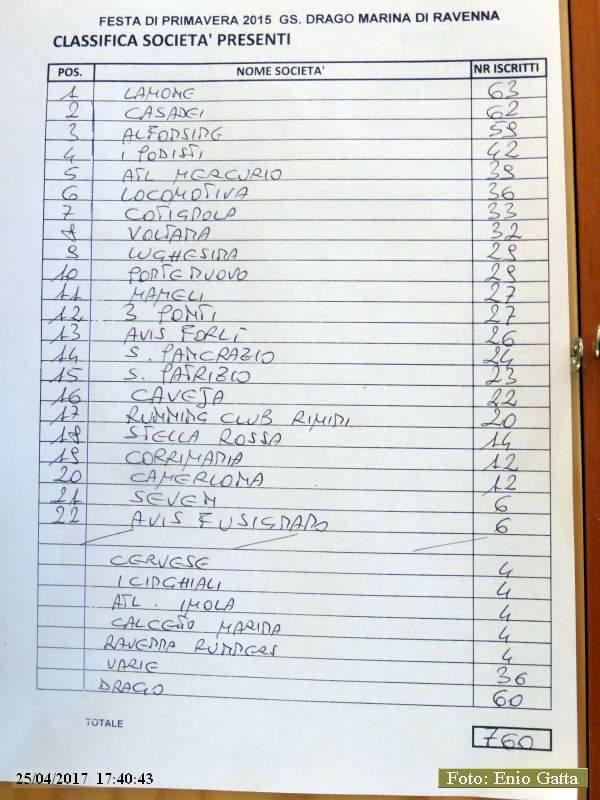 FESTA DI PRIMAVERA 2015 GS. DRAGO MARINA DI RAVENNA
CLASSIFICA SOCIETA' PRESENTI
POS. NOME SOCIETA' NR ISCRITTI
1 LAMONE 63
2 CASADEI 62
3 ALFONSINE 59
4 I PODISTI 42
5 ATL MERCURIO 39
6 LOCOMOTIVA 36
7 COTIGNOLA 33
8 VOLTANA 32
9 LUGHESINA 29
10 PONTENUOVO 29
11 MAMELI 27
12 3 PONTI 27
13 AVIS FORLÌ 26
14 S. PANCRAZIO 24
15 S. PATRIZIO 23
16 CAVEJA 22
17 RUNNING CLUB RIMINI 20
18 STELLA ROSSA 14
19 CORRIMANIA 12
20 CAMERLONA 12
21 SEVEN 6
22 AVIS FUSIGNANO 6
CERVESE 4
I CINGHIALI 4
ATL. IMOLA 4
CALCETTO MARINA 4
RAVENNA RUNNERS 4
VARIE 36
DRAGO 60
TOTALE 760
25/04/2017 17:40:43
Foto: Enio Gatta